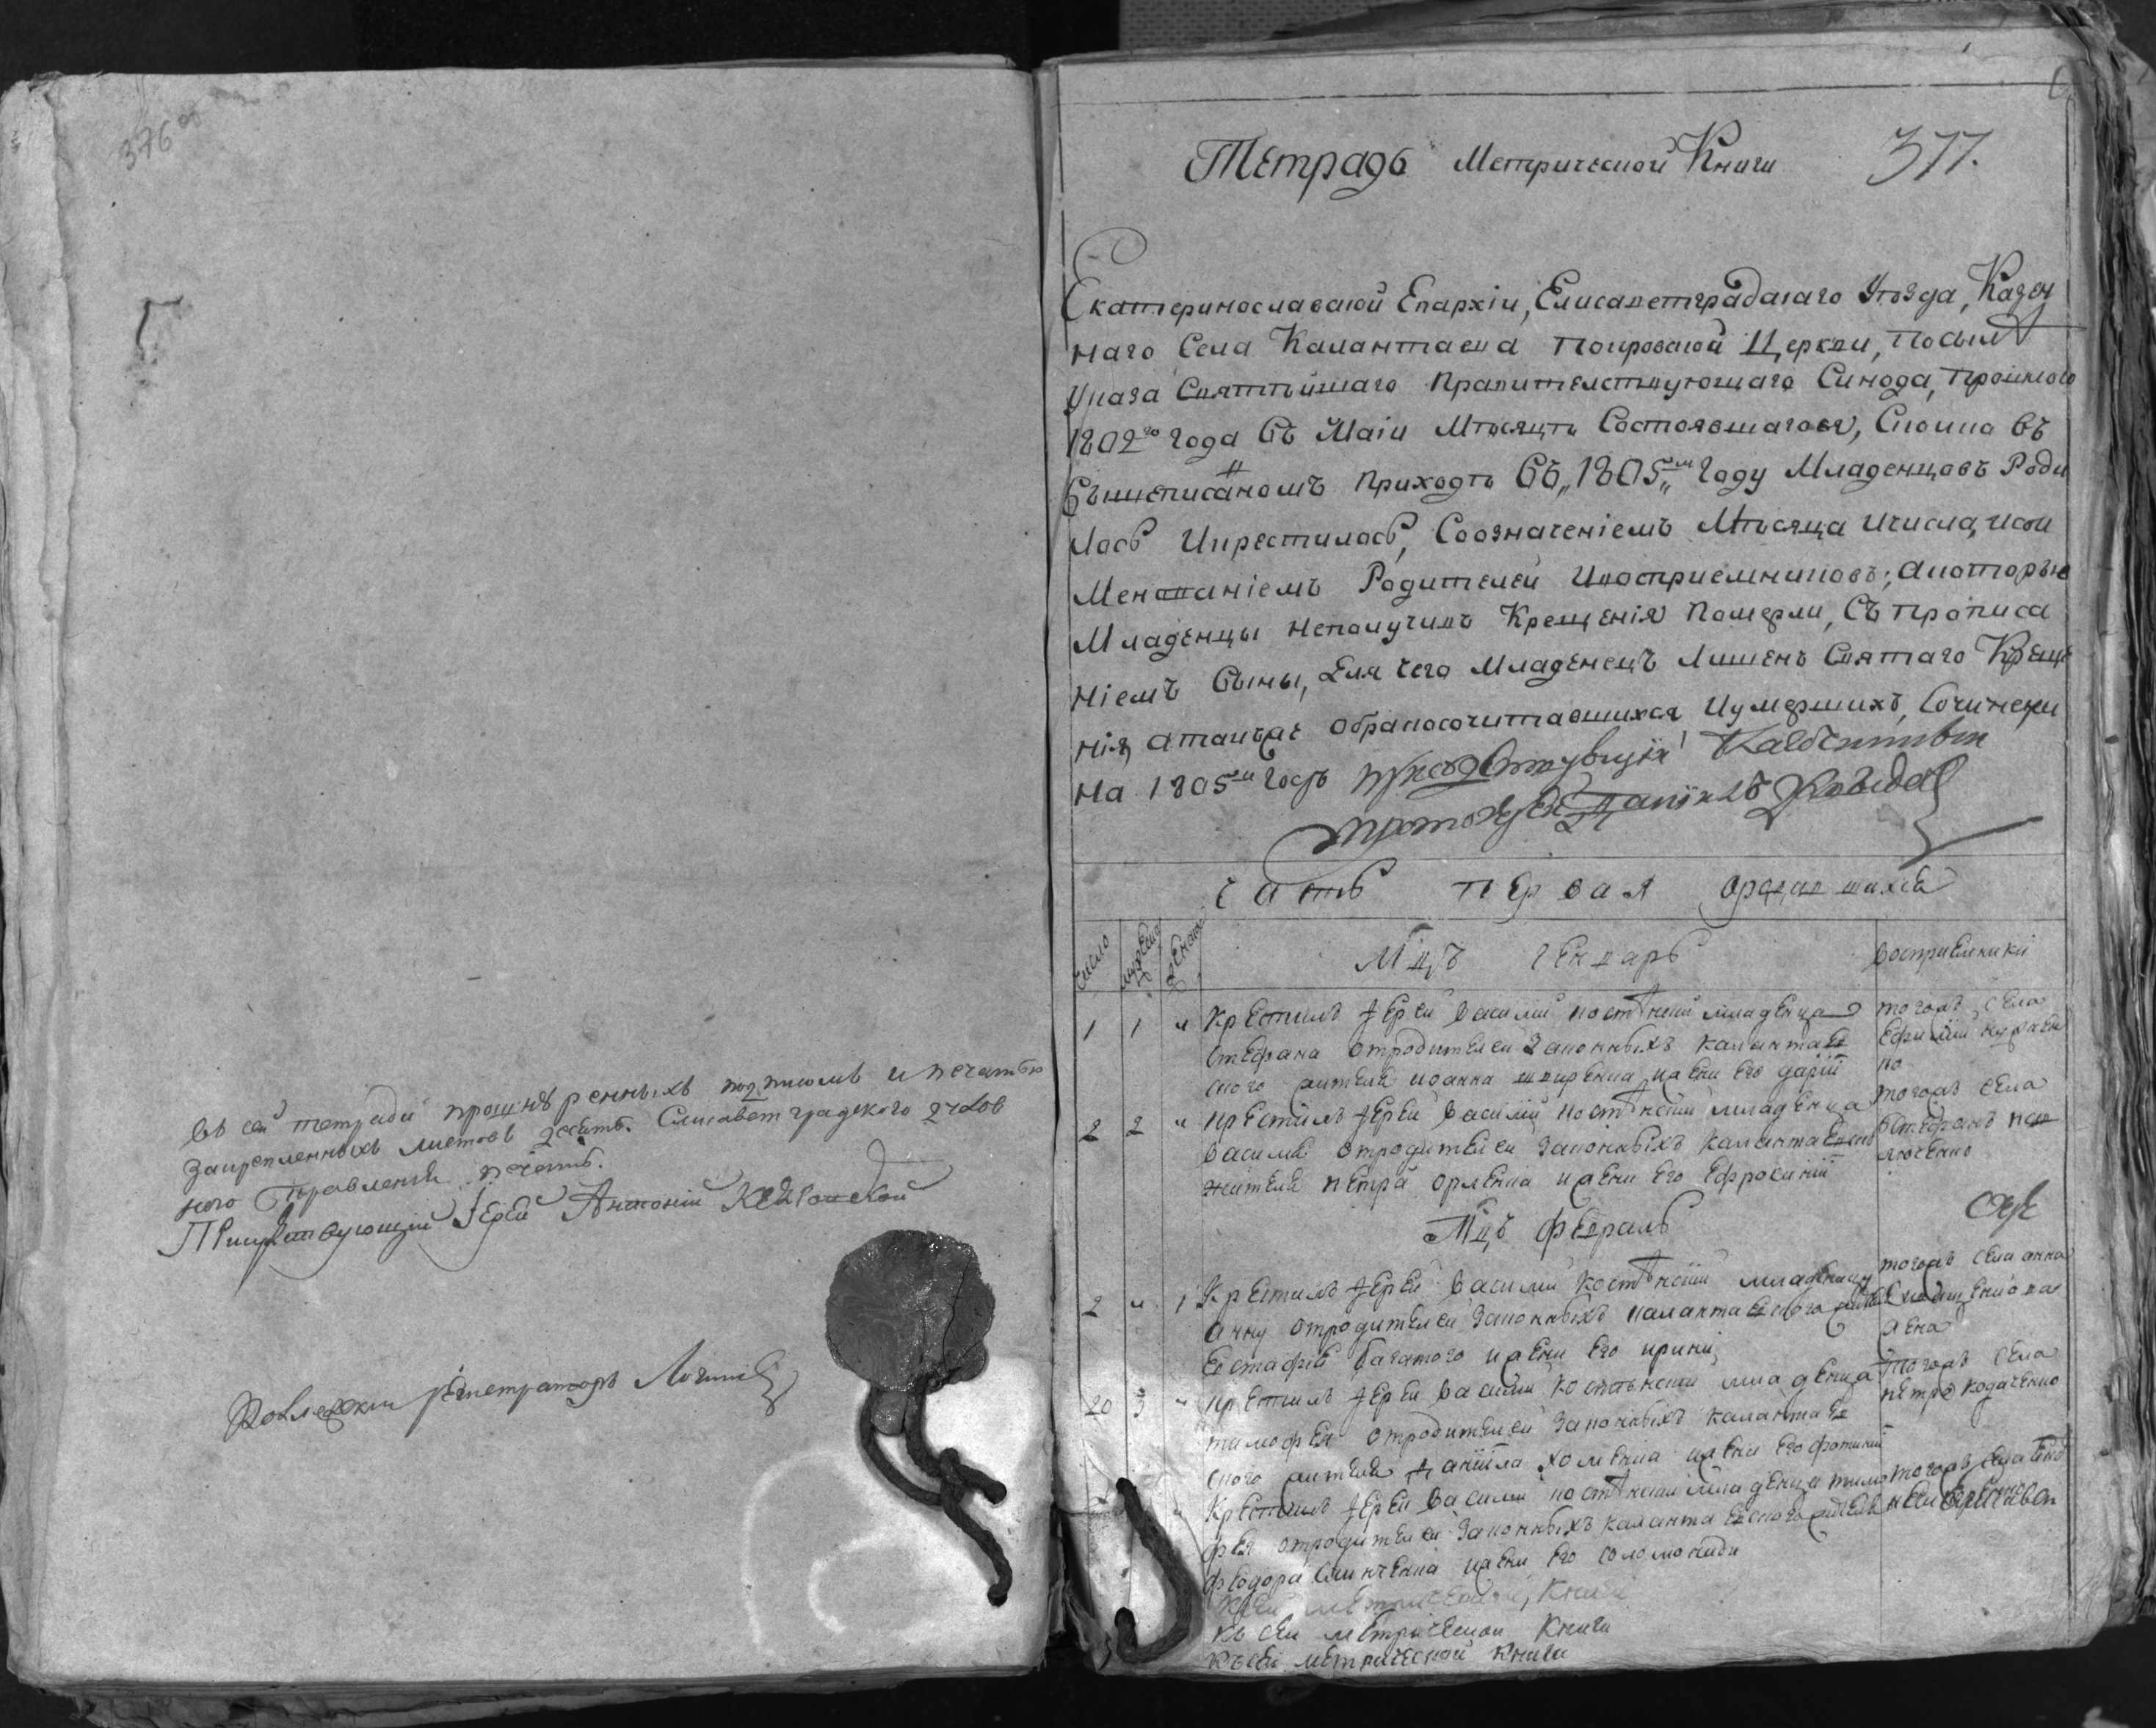 376 об
въ сей тетради прошнуренныхъ подписомъ и печатью
закрепленныхъ листовъ десять. Елисаветградского духов
ного Правления печать.
Присутствующій Іерей Антоній
регистраторъ
377.
Тетрадь Метрической Книги
Екатеринославской Епархіи, Елисаветградскаго Уѣзда, Казен
наго Села Калантаева Покровской Церкви, По силѣ
Указа Святѣйшаго Правителствующаго Синода, Прошлого
1802го Года Въ Маіи Мѣсяцѣ Состоявшагося, Сколко Въ
Вышеписаномъ Приходѣ Въ „1805„м Году Младенцовъ Роди
лось Икрестилось, Соозначеніемъ Мѣсяца Ичисла, Исъи
Менованіемъ Родителей Ивосприемниковъ; Акоторые
Младенцы Неполучивъ Крещенія Померли, Съ Прописа
ніемъ Вины, Для Чего Младенецъ Лишенъ Святаго Креще
нія, Атакъже Обракосочитавшихся Иумершихъ, Сочинены
На 1805й Годъ
Протоіерей
Часть первая ородившихся
Число
мужеска
женска
Мцъ Генварь
Восприемники
1 1 " Крестилъ Іерей Василий Костѣнский младенца
Стефана отродителей Законныхъ калантаев
ского жителя иоанна ширенка ижени его дарїи
тогожъ села
Ефимий
ко
2 2 " Крестилъ Іерей Василий Костѣнский младенца
Василия отродителей Законныхъ калантаевско
жителя петра орленка ижени его Ефросинїи
тогожъ села
Стефанъ
Мцъ Февраль
2 " 1 Крестилъ Іерей Василий Костѣнский младеницу
анну отродителей Законныхъ калантаевского жителя
Евстафия багатого ижени его ирини
тогожъ села анна
жена
20 3 " Крестилъ Іерей Василий Костѣнский младенца
тимофея отродителей Законныхъ калантаев
ского жителя данїила хоменка ижени его фотинии
тогожъ села
петро кодаченко
" Крестилъ Іерей Василий Костѣнский младенца тимо
фея отродителей Законныхъ калантаевского жителя
феодора ижени его соломониди
тогожъ села
Къ сей метрической Книги
Къ сей метрической Книги
Къ сей метрической Книги